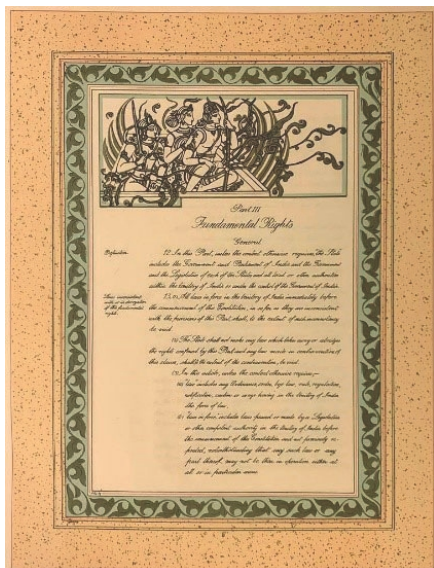 Part III
Fundamental Rights
General
Definition. 12. In this Part, unless the context otherwise requires, "the State"
includes the Government and Parliament of India and the Government
and the Legislature of each of the States and all local or other authorities
within the territory of India or under the control of the Government of India.
Laws inconsistent with or in derogation of the fundamental rights. 13. (1) All laws in force in the territory of India immediately before
the commencement of this Constitution, in so far as they are inconsistent
with the provisions of this Part, shall, to the extent of such inconsistency,
be void.
(2) The State shall not make any law which takes away or abridges
the rights conferred by this Part and any law made in contravention of
this clause shall, to the extent of the contravention, be void.
(3) In this article, unless the context otherwise requires,—
(a) "law" includes any Ordinance, order, bye-law, rule, regulation,
notification, custom or usage having in the territory of India
the force of law;
(b) "laws in force" includes laws passed or made by a Legislature
or other competent authority in the territory of India before
the commencement of this Constitution and not previously re-
pealed, notwithstanding that any such law or any
part thereof may not be then in operation either at
all or in particular areas.